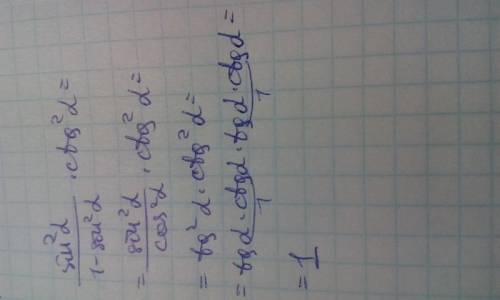 sin²α / 1-sin²α · ctg²α =
= sin²α / cos²α · ctg²α =
= tg²α · ctg²α =
= tgα · ctgα · tgα · ctgα =
1 1
= 1